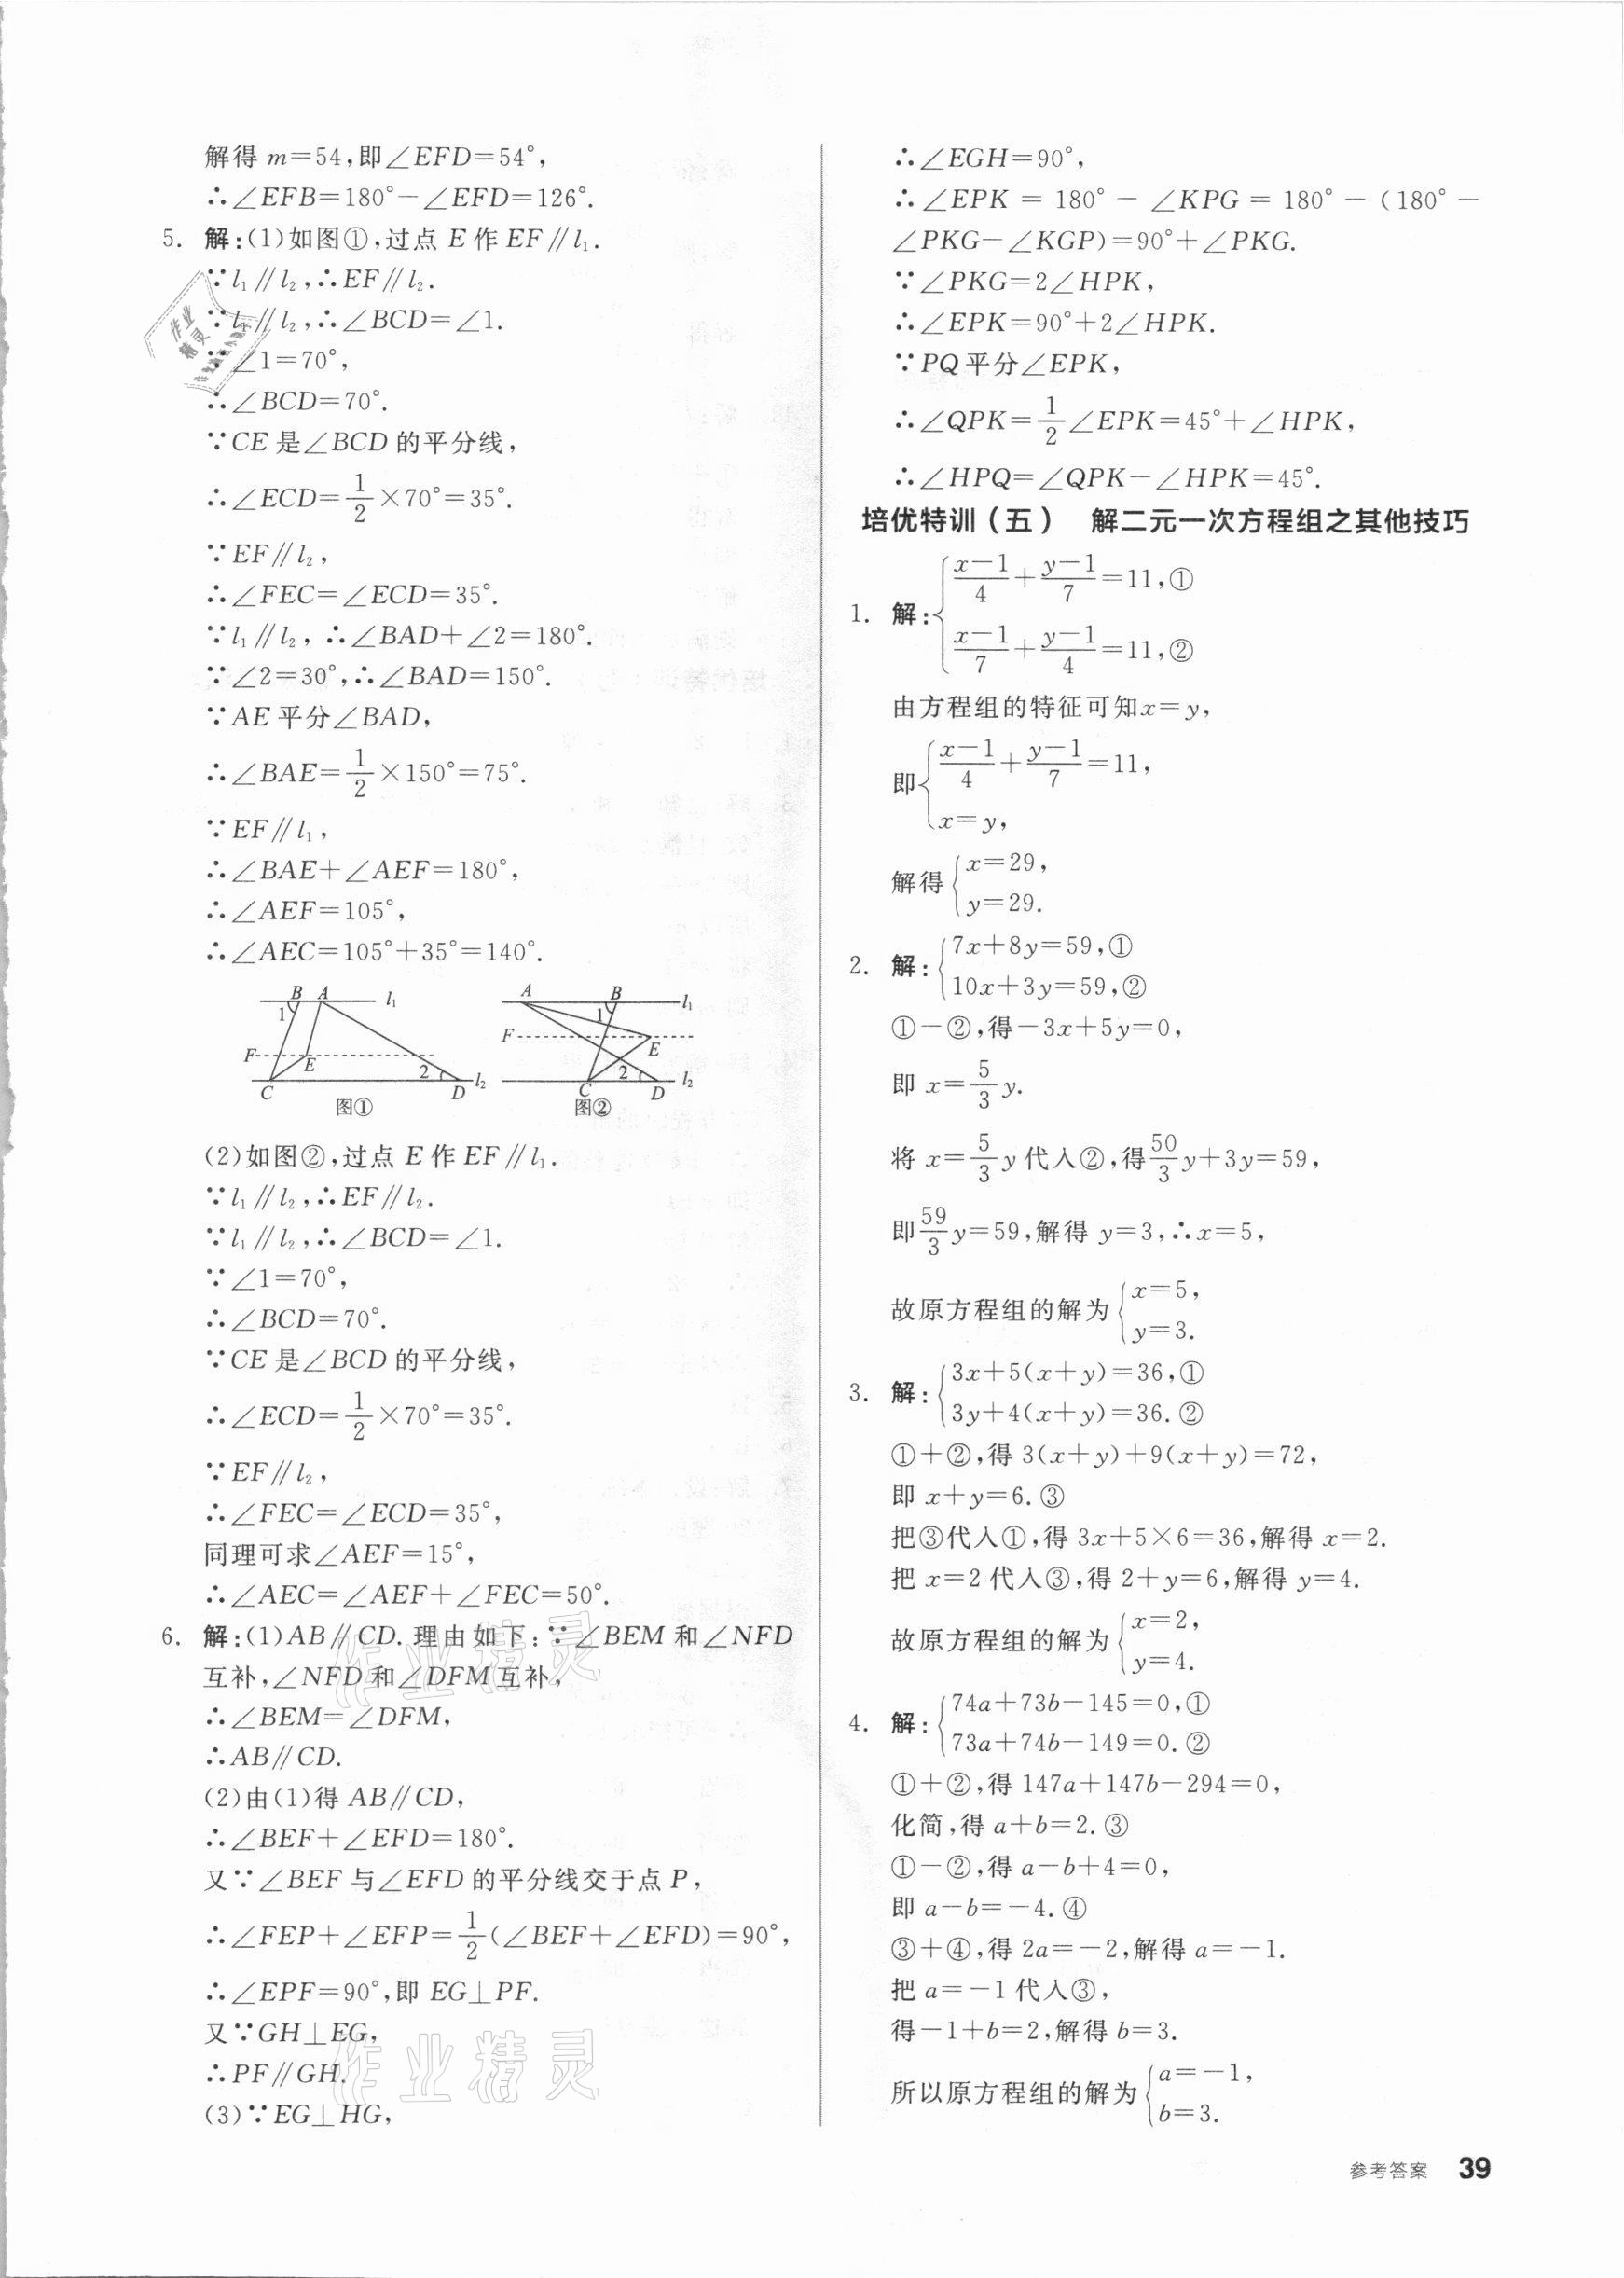 解得 m=54,即∠EFD=54°,
∴∠EFB=180°-∠EFD=126°.
5. 解:(1)如图①,过点 E 作 EF∥l₁.
∵l₁∥l₂,∴EF∥l₂.
∵l₁∥l₂,∴∠BCD=∠1.
∵∠1=70°,
∴∠BCD=70°.
∵CE 是∠BCD 的平分线,
∴∠ECD=1/2×70°=35°.
∵EF∥l₂,
∴∠FEC=∠ECD=35°.
∵l₁∥l₂, ∴∠BAD+∠2=180°.
∵∠2=30°,∴∠BAD=150°.
∵AE 平分∠BAD,
∴∠BAE=1/2×150°=75°.
∵EF∥l₁,
∴∠BAE+∠AEF=180°,
∴∠AEF=105°,
∴∠AEC=105°+35°=140°.
B A l₁
1
F E
2 l₂
C D
图①
A B l₁
1
F
E
2 l₂
C D
图②
(2)如图②,过点 E 作 EF∥l₁.
∵l₁∥l₂,∴EF∥l₂.
∵l₁∥l₂,∴∠BCD=∠1.
∵∠1=70°,
∴∠BCD=70°.
∵CE 是∠BCD 的平分线,
∴∠ECD=1/2×70°=35°.
∵EF∥l₂,
∴∠FEC=∠ECD=35°,
同理可求∠AEF=15°,
∴∠AEC=∠AEF+∠FEC=50°.
6. 解:(1)AB∥CD. 理由如下:∵∠BEM 和∠NFD
互补,∠NFD 和∠DFM 互补,
∴∠BEM=∠DFM,
∴AB∥CD.
(2)由(1)得 AB∥CD,
∴∠BEF+∠EFD=180°.
又∵∠BEF 与∠EFD 的平分线交于点 P,
∴∠FEP+∠EFP=1/2(∠BEF+∠EFD)=90°,
∴∠EPF=90°,即 EG⊥PF.
又∵GH⊥EG,
∴PF∥GH.
(3)∵EG⊥HG,
∴∠EGH=90°,
∴∠EPK = 180° - ∠KPG = 180° - (180° -
∠PKG-∠KGP)=90°+∠PKG.
∵∠PKG=2∠HPK,
∴∠EPK=90°+2∠HPK.
∵PQ 平分∠EPK,
∴∠QPK=1/2∠EPK=45°+∠HPK,
∴∠HPQ=∠QPK-∠HPK=45°.
培优特训(五) 解二元一次方程组之其他技巧
1. 解:{(x-1)/4+(y-1)/7=11,①
(x-1)/7+(y-1)/4=11,②
由方程组的特征可知x=y,
即{(x-1)/4+(y-1)/7=11,
x=y,
解得{x=29,
y=29.
2. 解:{7x+8y=59,①
10x+3y=59,②
①-②,得-3x+5y=0,
即 x=5/3y.
将 x=5/3y 代入②,得50/3y+3y=59,
即59/3y=59,解得 y=3,∴x=5,
故原方程组的解为{x=5,
y=3.
3. 解:{3x+5(x+y)=36,①
3y+4(x+y)=36.②
①+②,得 3(x+y)+9(x+y)=72,
即 x+y=6.③
把③代入①,得 3x+5×6=36,解得 x=2.
把 x=2 代入③,得 2+y=6,解得 y=4.
故原方程组的解为{x=2,
y=4.
4. 解:{74a+73b-145=0,①
73a+74b-149=0.②
①+②,得 147a+147b-294=0,
化简,得 a+b=2.③
①-②,得 a-b+4=0,
即 a-b=-4.④
③+④,得 2a=-2,解得 a=-1.
把 a=-1 代入③,
得-1+b=2,解得 b=3.
所以原方程组的解为{a=-1,
b=3.
参考答案 39
作业精灵
作业精灵
作业
精灵